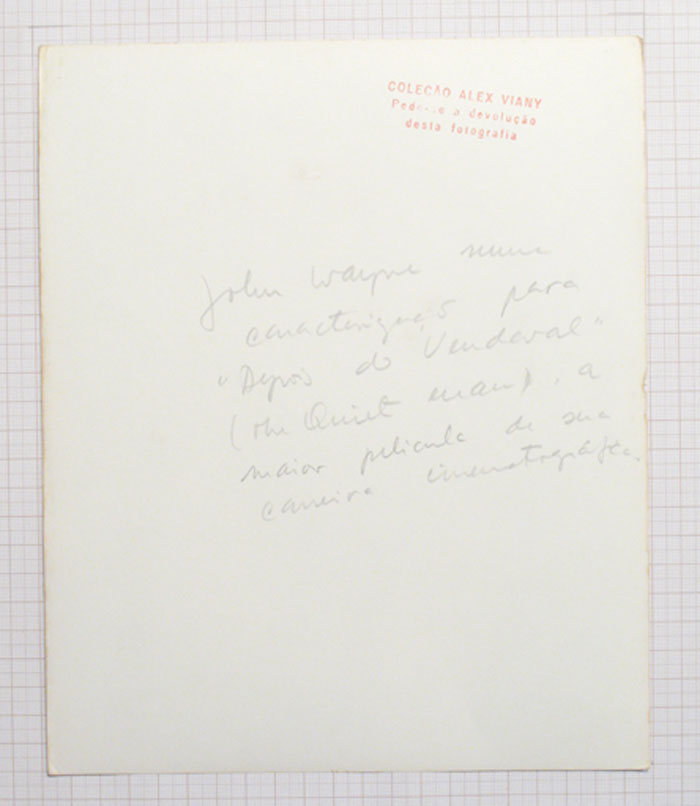 COLEÇÃO ALEX VIANY
Pede-se a devolução
desta fotografia
John Wayne numa
caracterização para
"Depois do Vendaval"
(The Quiet man), a
maior pelicula de sua
carreira cinematográfica.